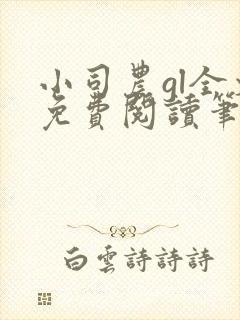 小司農gl全文
免費閱讀筆
白雲詩詩詩